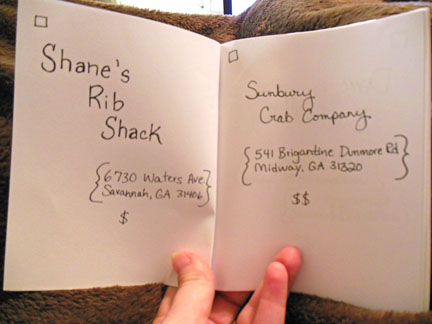 Shane's
Rib
Shack
{6730 Waters Ave
Savannah, GA 31406}
$
Sunbury
Crab Company
{541 Brigantine Dunmore Rd
Midway, GA 31320}
$$